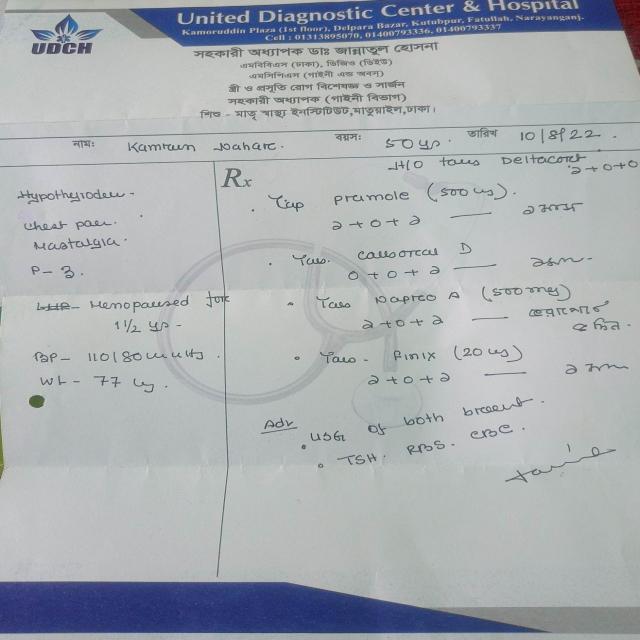 UDCH
United Diagnostic Center & Hospital
Kamoruddin Plaza (1st floor), Delpara Bazar, Kutubpur, Fatullah, Narayanganj.
Cell : 01313895070, 01400793336, 01400793337
সহকারী অধ্যাপক ডাঃ জান্নাতুল হোসনা
এমবিবিএস (ঢাকা), ডিজিও (ডিইউ)
এমসিপিএস (গাইনী এন্ড অবস)
স্ত্রী ও প্রসূতি রোগ বিশেষজ্ঞ ও সার্জন
সহকারী অধ্যাপক (গাইনী বিভাগ)
শিশু - মাতৃ স্বাস্থ্য ইনস্টিটিউট, মাতুয়াইল, ঢাকা।
নাম: Kamrun Nahar. বয়স: 50 ys. তারিখ 10/8/22.
H/O Deltacort
২+০+০
Hypothyroden
chest pain.
Mastalgia.
P- 3.
Menopaused for
1 1/2 ys -
BP- 110/80 mmHg.
Wt- 77 kg.
Rx
Tap pramole (500 mg).
২+০+২ —
Tab. D
০+০+২ —
Tab Napro A (500 mg)
২+০+২ —
Tab- Finix (20 mg)
২+০+২ —
Adv
USG of both breast.
TSH. RBS. CBC.